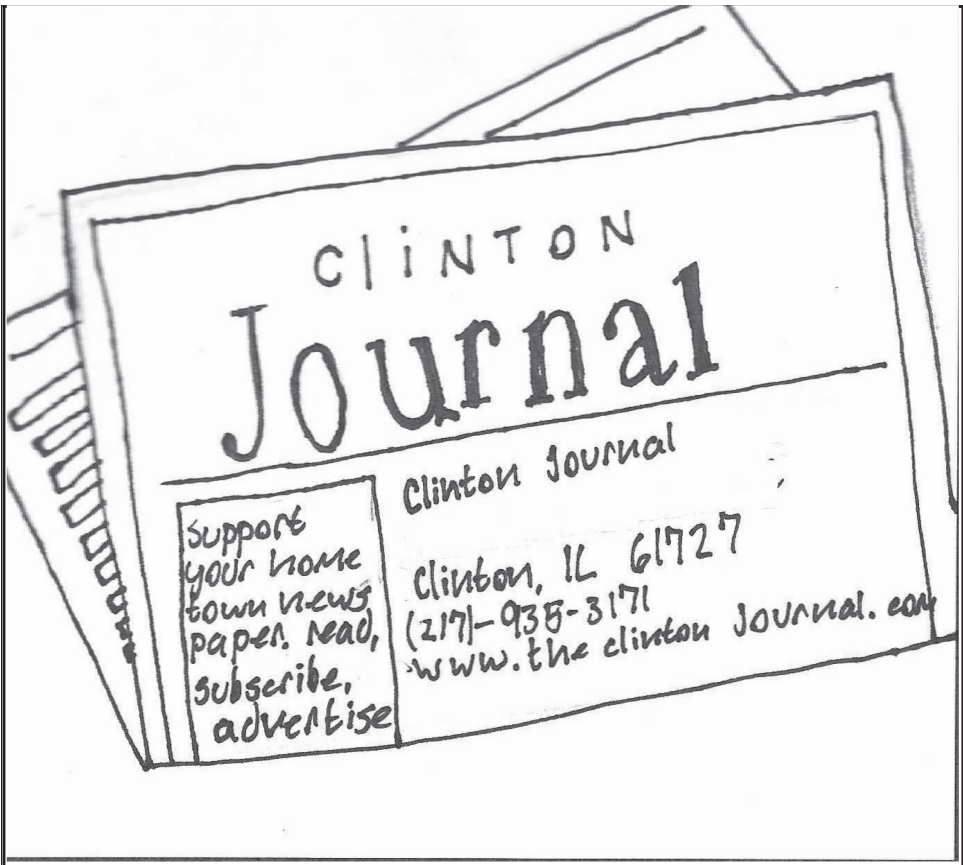 CliNTON
Journal
Support
your home
town news
paper. read,
subscribe,
advertise
Clinton Journal
Clinton, IL 61727
(217)-935-3171
www.the clinton Journal.com